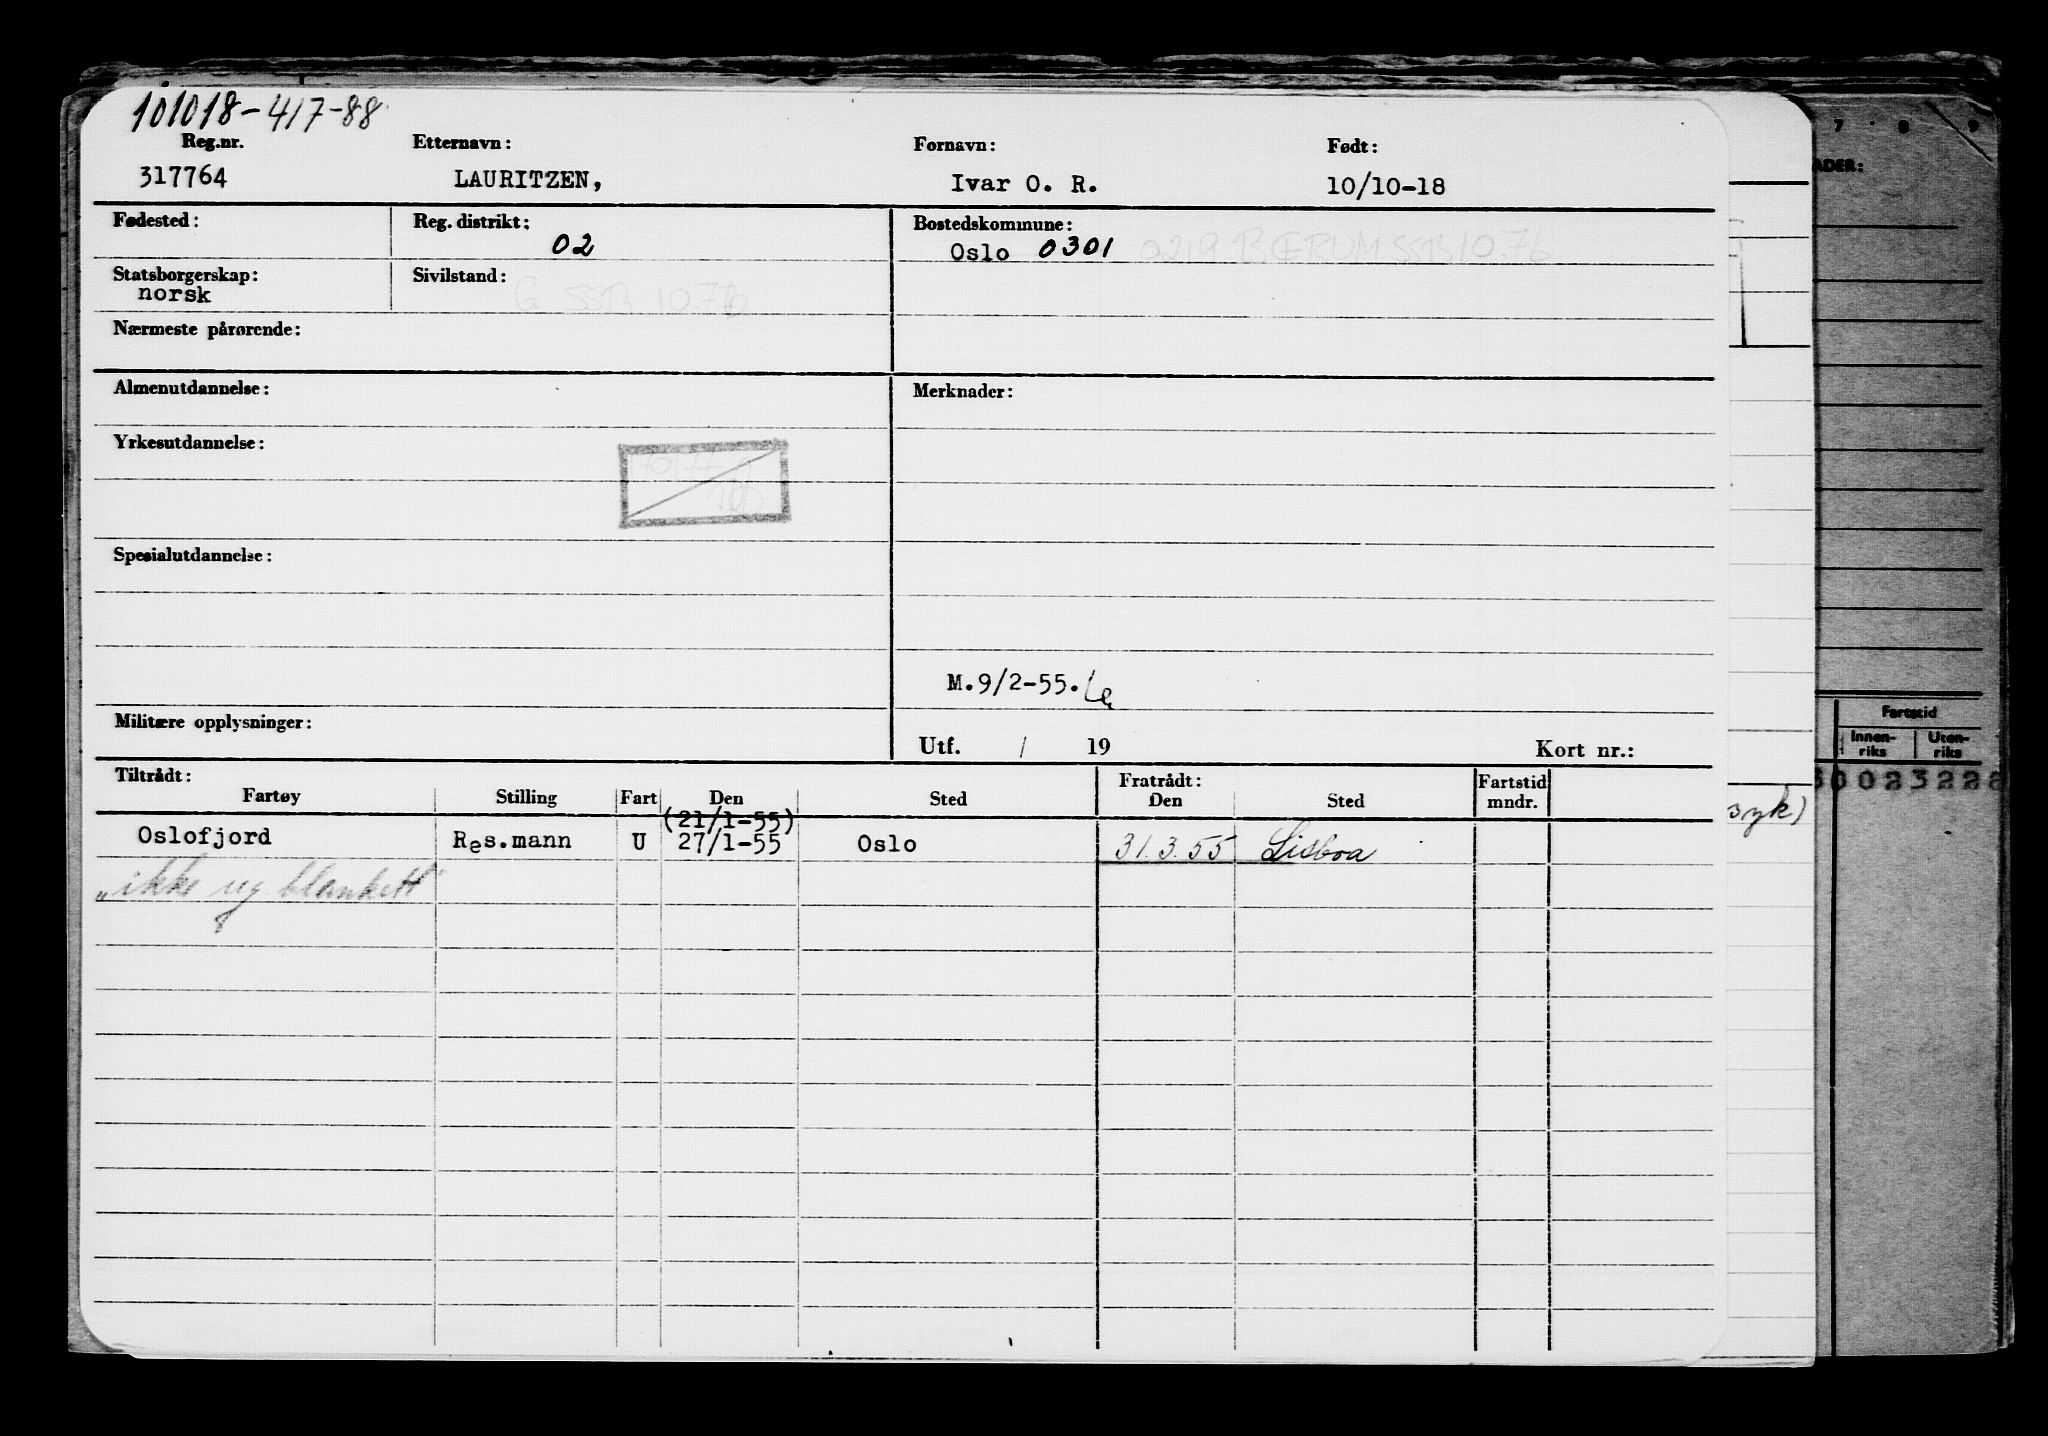 101018-417-88
Reg.nr. Etternavn: Fornavn: Født:
317764 LAURITZEN, Ivar O. R. 10/10-18
Fødested: Reg. distrikt: 02 Bostedskommune: Oslo 0301 0219 BÆRUM SSB 10.76
Statsborgerskap: norsk Sivilstand: G SSB 10.76
Nærmeste pårørende:
Almenutdannelse: Merknader:
Yrkesutdannelse:
Spesialutdannelse:
M.9/2-55.
Militære opplysninger:
Utf. / 19 Kort nr.:
Tiltrådt: Fratrådt:
Fartøy Stilling Fart Den Sted Den Sted Fartstid mndr.
(21/1-55)
Oslofjord Res.mann U 27/1-55 Oslo 31.3.55 Lisboa
"ikke ug blankett"
7 8 9
ADER:
Fartstid
Innen-riks Uten-riks
0023228
syk)